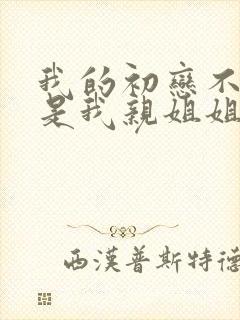 我的初戀不
是我親姐姐
西漢普斯特德